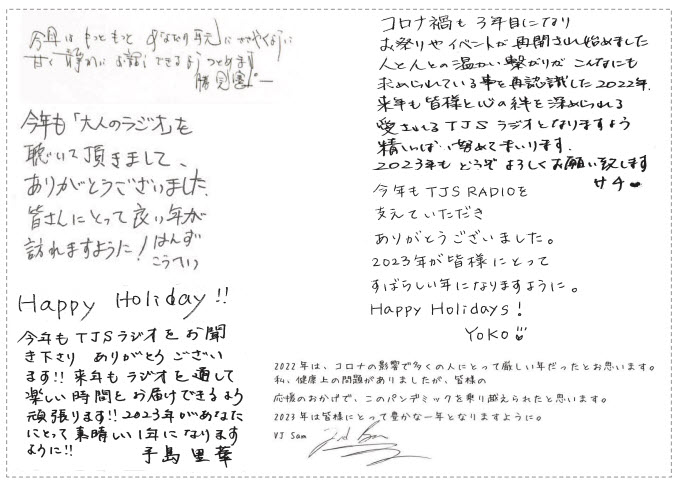 今年は もっともっと あなたの耳元にささやくように
甘く静かにお話しできるようつとめます
今年も「大人のラジオ」を
聴いて頂きまして、
ありがとうございました。
皆さんにとって良い年が
訪れますように! はんず
こうてい
Happy Holiday!!
今年もTJSラジオをお聞
き下さり ありがとうござい
ます!! 来年もラジオを通して
楽しい時間をお届けできるよう
頑張ります!! 2023年があなた
にとって素晴しい1年になります
ように!!
手島里華
コロナ禍も3年目になり
お祭りやイベントが再開され始めました
人と人との温かい繋がりがこんなにも
求められている事を再認識した2022年。
来年も皆様と心の絆を深められる
愛されるTJSラジオとなりますよう
精いっぱい努めてまいります。
2023年もどうぞよろしくお願い致します
サチ
今年もTJS RADIOを
支えていただき
ありがとうございました。
2023年が皆様にとって
すばらしい年になりますように。
Happy Holidays!
YOKO
2022年は、コロナの影響で多くの人にとって厳しい年だったとお思います。
私、健康上の問題がありましたが、皆様の
応援のおかげで、このパンデミックを乗り越えられたと思います。
2023年は皆様にとって豊かな一年となりますように。
VJ Sam